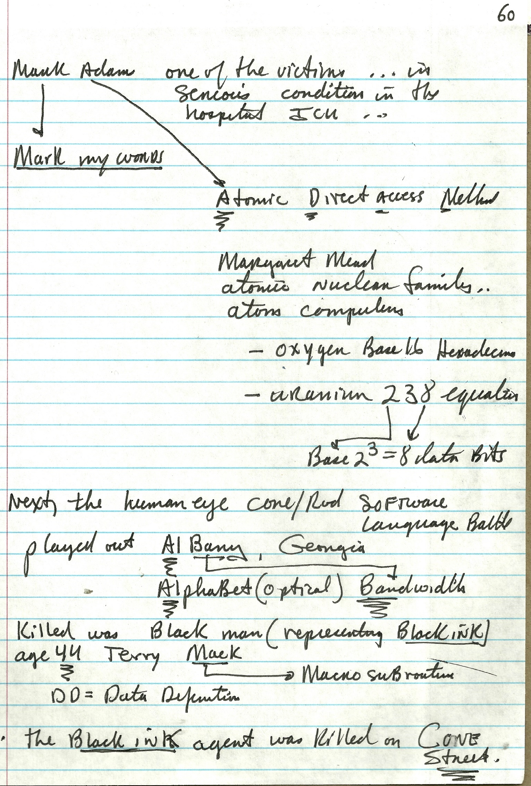 60
Mark Adam one of the victims ... in
serious condition in the
hospital ICU ...
Mark my words
Atomic Direct access Method
Margaret Mead
atomic Nuclear families..
atoms computers
- oxygen Base 16 Hexadecims
- uranium 238 equation
Base 2³ = 8 data Bits
Next, the human eye cone/Rod SOFTware
Language Battle
played out Al Bany, Georgia
AlphaBet (optical) Bandwidth
Killed was Black man (representing Black iNK)
age 44 Terry Mack
Macro subroutine
DD = Data Definition
. the Black iNK agent was killed on CONE
Street.